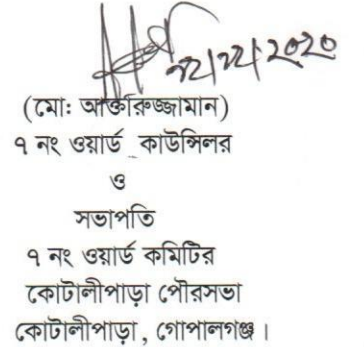 ২২/১২/২০২০
(মো: আক্তারুজ্জামান)
৭ নং ওয়ার্ড কাউন্সিলর
ও
সভাপতি
৭ নং ওয়ার্ড কমিটির
কোটালীপাড়া পৌরসভা
কোটালীপাড়া, গোপালগঞ্জ।